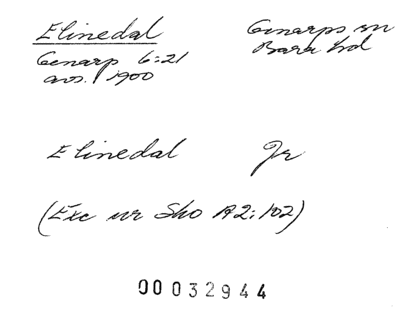 Elinedal
Genarps sn
Bara hd
Genarp 6:21
avs. 1900
Elinedal Jr
(Exc ur Sko A2:102)
00032944